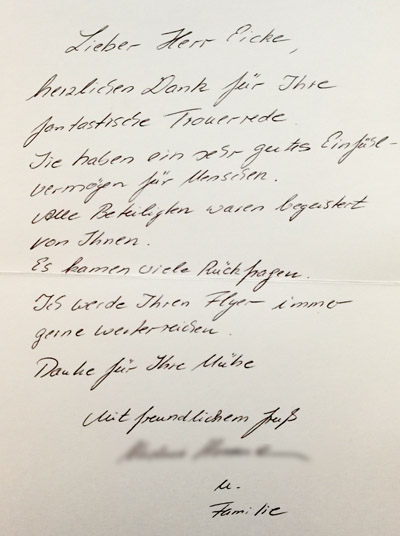 Lieber Herr Eicke,
herzlichen Dank für Ihre
fantastische Trauerrede
Sie haben ein sehr gutes Einfühl-
vermögen für Menschen.
Alle Beteiligten waren begeistert
von Ihnen.
Es kamen viele Rückfragen.
Ich werde Ihren Flyer immer
gerne weiterreichen.
Danke für Ihre Mühe
Mit freundlichem Gruß
u.
Familie